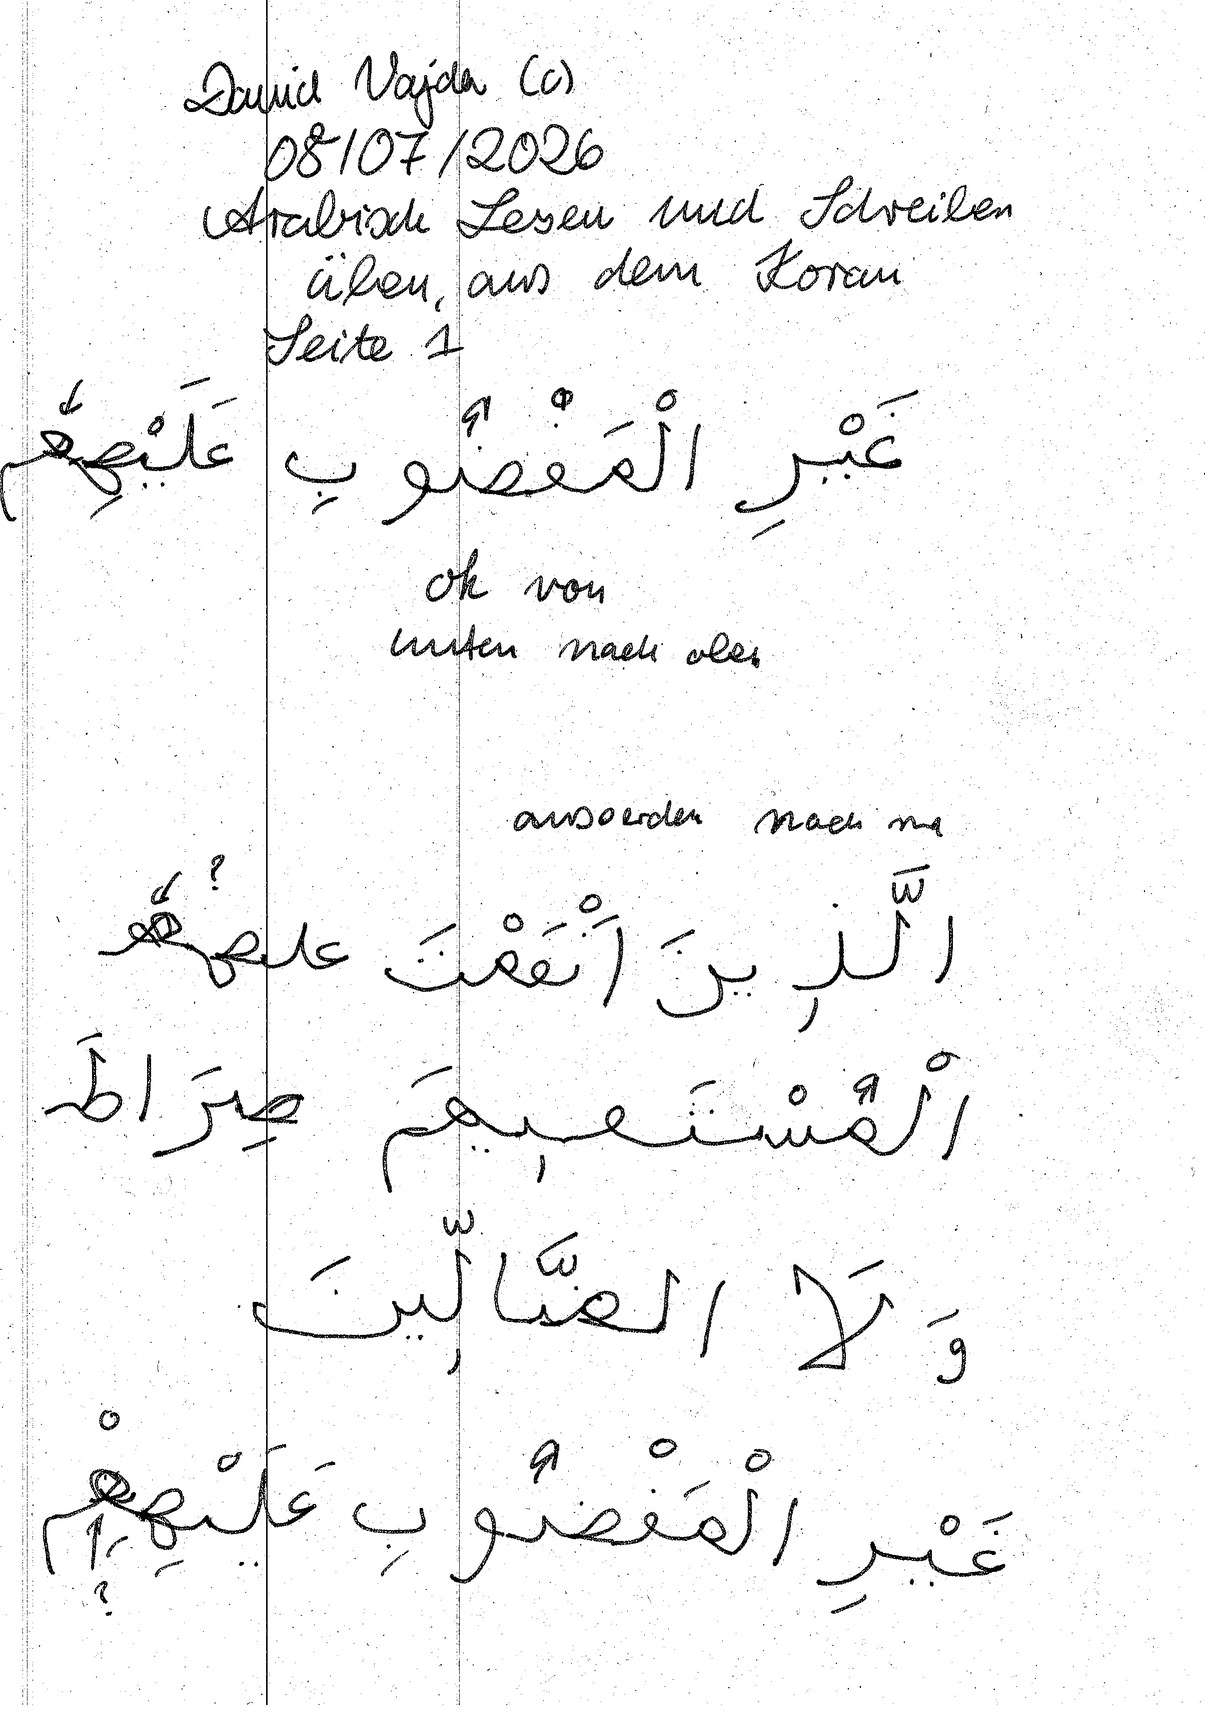 David Vajda (c)
08/07/2026
Arabisch Lesen und Schreiben
üben, aus dem Koran
Seite 1
غَيْرِ الْمَغْضُوبِ عَلَيْهِم
ok von
unten nach oben
nach
الَّذِينَ اَنْعَمْتَ
الْمُسْتَـقِيمَ صِرَاطَ
وَلَا الضَّالِّينَ
غَيْرِ الْمَغْضُوبِ عَلَيْهِم
?